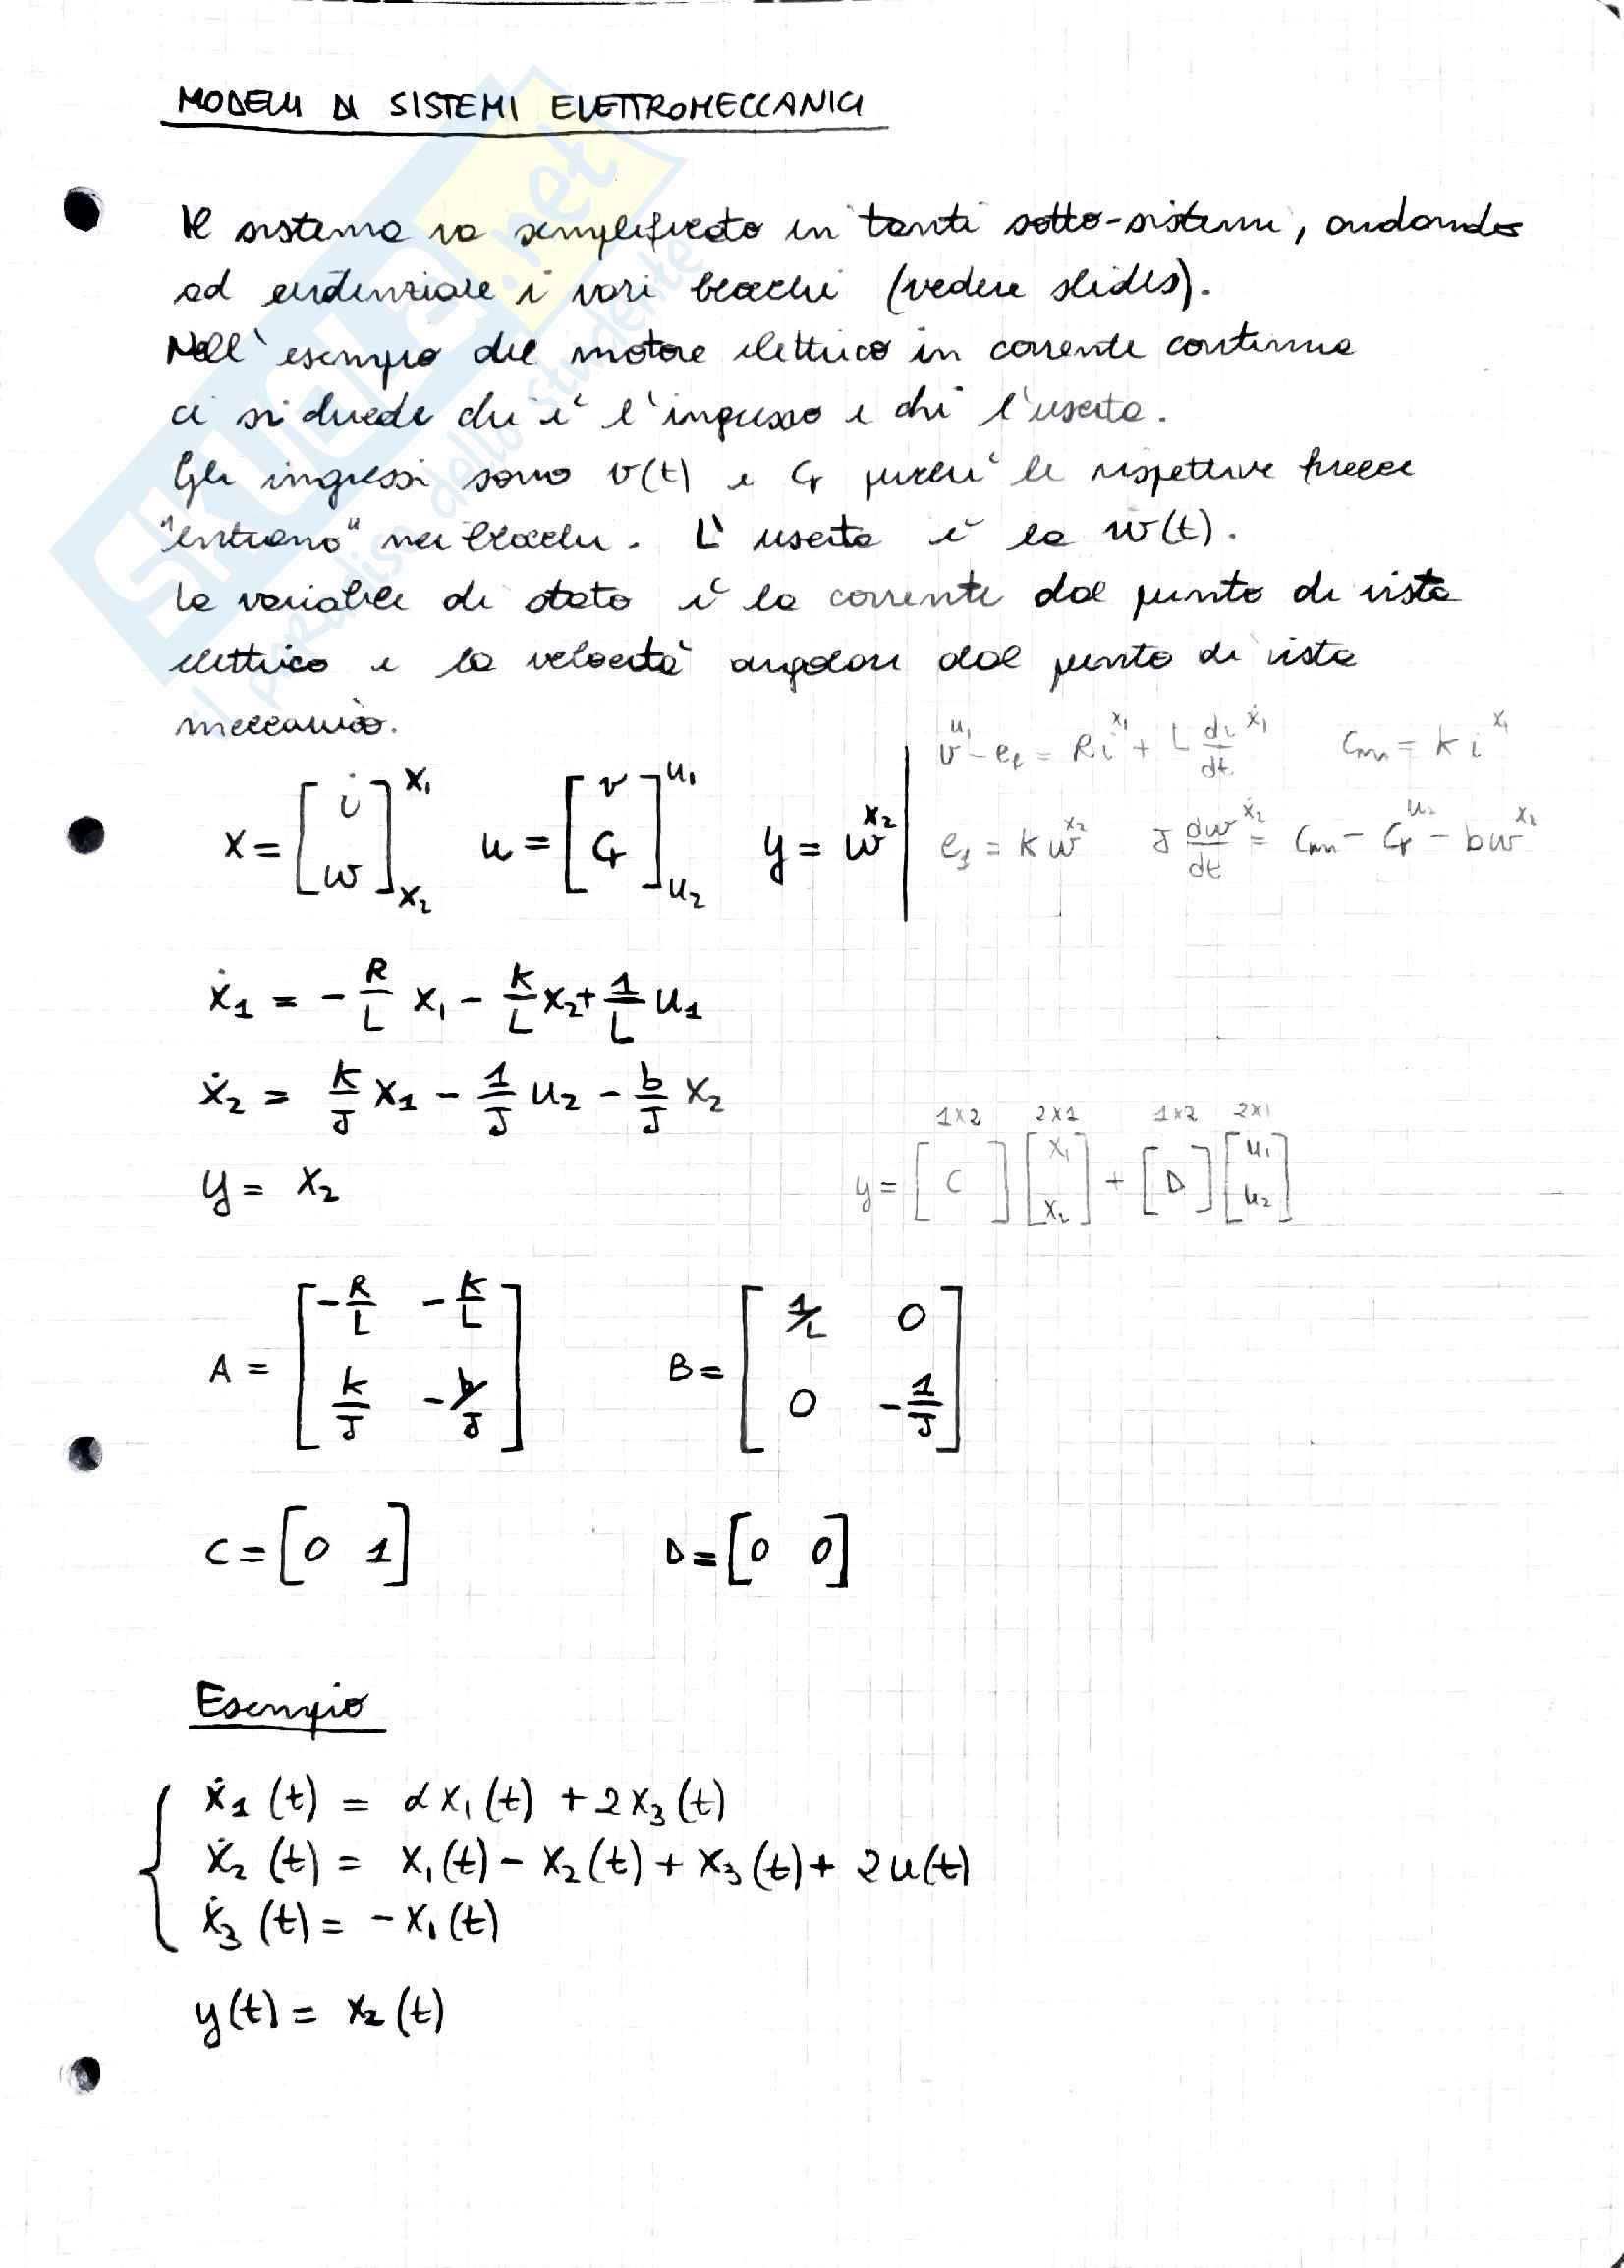 MODELLI DI SISTEMI ELETTROMECCANICI
Il sistema va semplificato in tanti sotto-sistemi, andando
ad evidenziare i vari blocchi (vedere slides).
Nell'esempio del motore elettrico in corrente continua
ci si chiede chi è l'ingresso e chi l'uscita.
Gli ingressi sono v(t) e Cr perché le rispettive frecce
"entrano" nei blocchi. L'uscita è la w(t).
La variabile di stato è la corrente dal punto di vista
elettrico e la velocità angolare dal punto di vista
meccanico.
x = [i; w] x1 x2   u = [v; Cr] u1 u2   y = w x2
v u1 - e = R i x1 + L di/dt ẋ1   Cm = K i x1
e = K w x2   J dw/dt ẋ2 = Cm - Cr u2 - b w x2
ẋ1 = - R/L x1 - K/L x2 + 1/L u1
ẋ2 = K/J x1 - 1/J u2 - b/J x2
y = x2
1x2 2x1 1x2 2x1
y = [C] [x1; x2] + [D] [u1; u2]
A = [-R/L -K/L; K/J -b/J]   B = [1/L 0; 0 -1/J]
C = [0 1]   D = [0 0]
Esempio
ẋ1(t) = αx1(t) + 2x3(t)
ẋ2(t) = x1(t) - x2(t) + x3(t) + 2u(t)
ẋ3(t) = -x1(t)
y(t) = x2(t)
SKUOLA.net
il paradiso dello studente